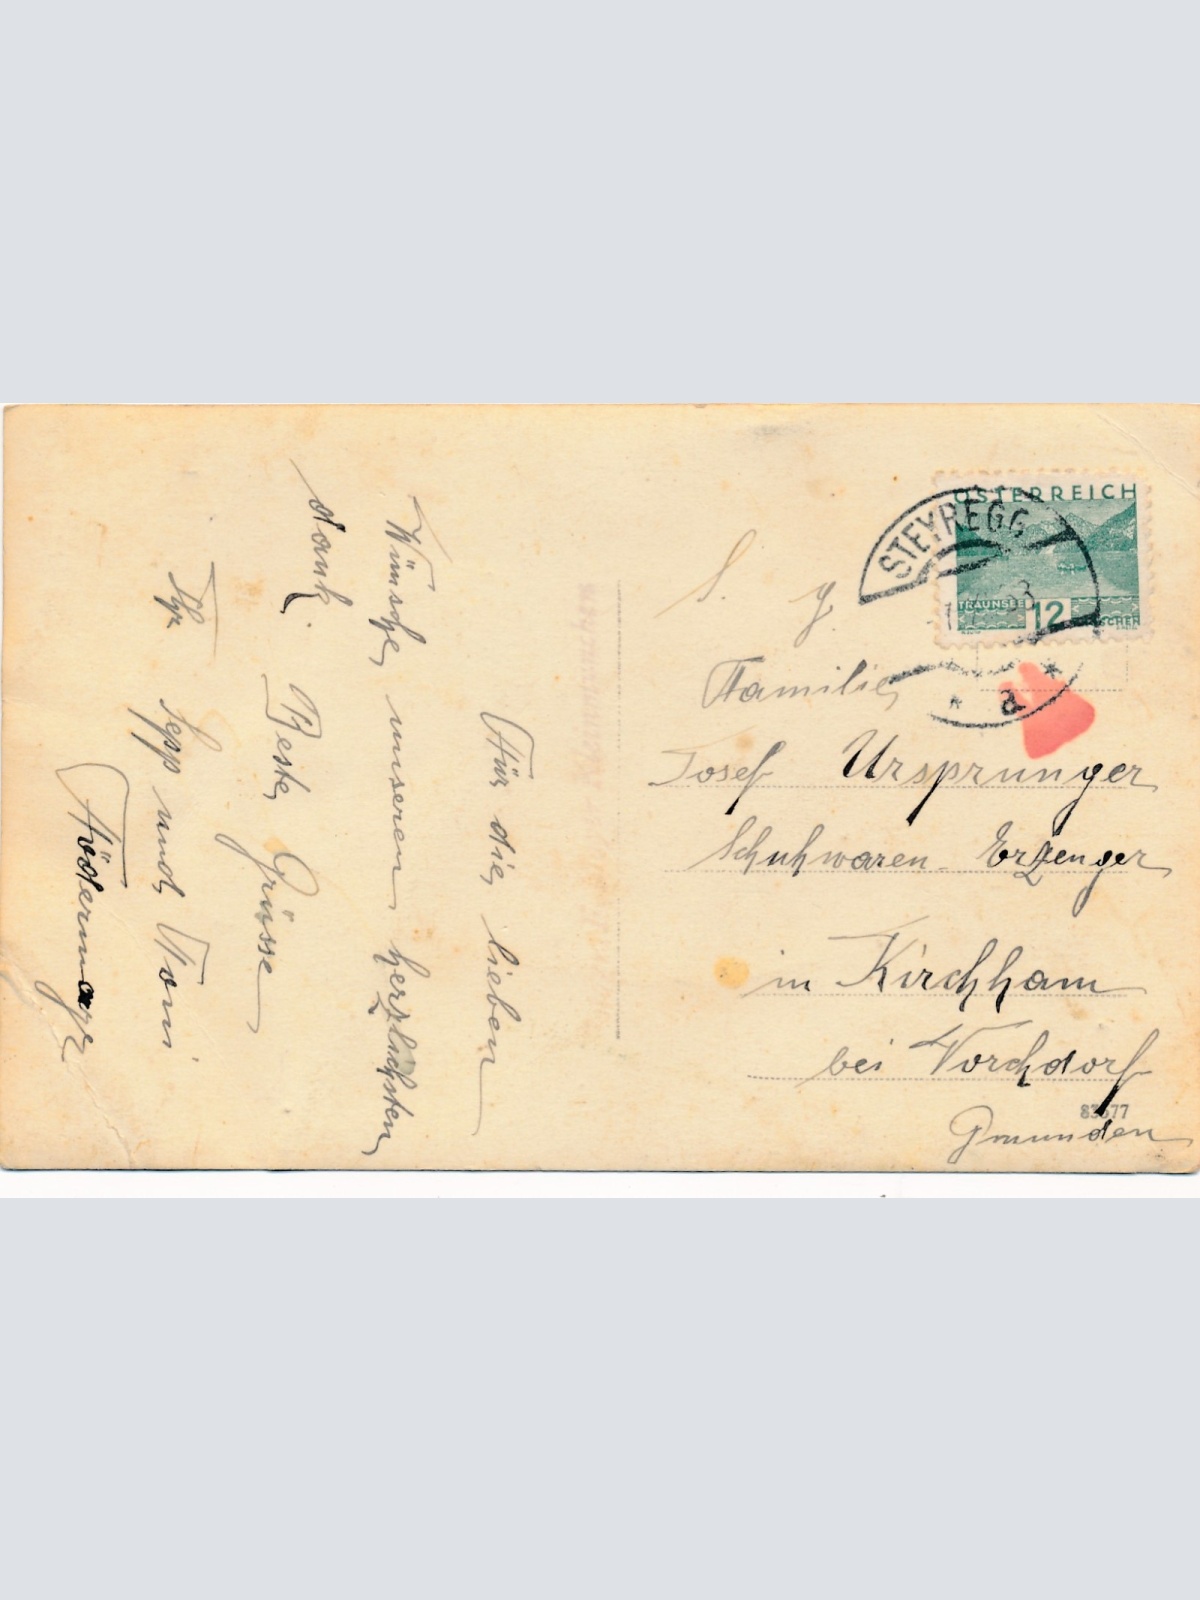 Für die lieben
Wünsche unseren herzlichsten
dank.
Beste Grüsse
Ihr Sepp und Toni
Födermayr
ÖSTERREICH
STEYREGG
TRAUNSEE
12
a
S. g.
Familie
Josef Ursprunger
Schuhwaren-Erzeuger
in Kirchham
bei Vorchdorf
83677
Gmunden